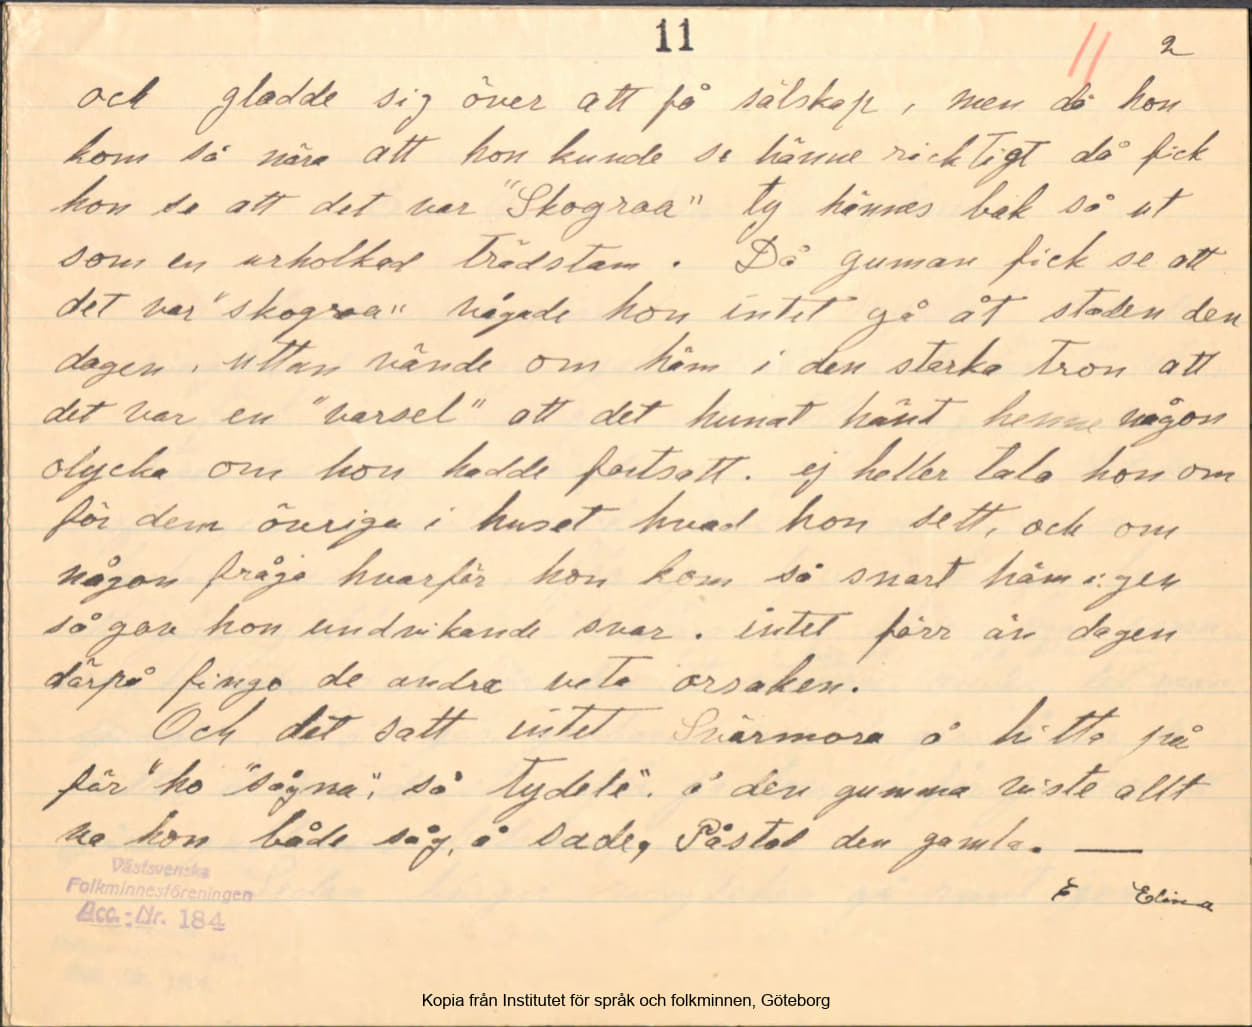 11
11 2
och gladde sig över att få sälskap, men då hon
kom så nära att hon kunde se hänne ricktigt då fick
hon se att det var "Skograa" ty hännes bak så ut
som en urholkad trädstam. Då guman fick se att
det var "skograa" vågade hon intet gå åt staden den
dagen, uttan vände om häm i den starka tron att
det var en "varsel" att det hunat hänt henne någon
olycka om hon hadde fortsatt. ej heller tala hon om
för dem övriga i huset hvad hon sett, och om
någon fråga hvarför hon kom så snart häm igen
så gav hon undvikande svar. intet förr än dagen
därpå fingo de andra veta orsaken.
Och det satt intet Svärmora å hitta på
för "ho "sågna", så tydele". å den gumma viste allt
va hon både såg, å sade, Påstod den gamla. —
E Elina
Västsvenska
Folkminnesföreningen
Acc.-Nr. 184
Kopia från Institutet för språk och folkminnen, Göteborg